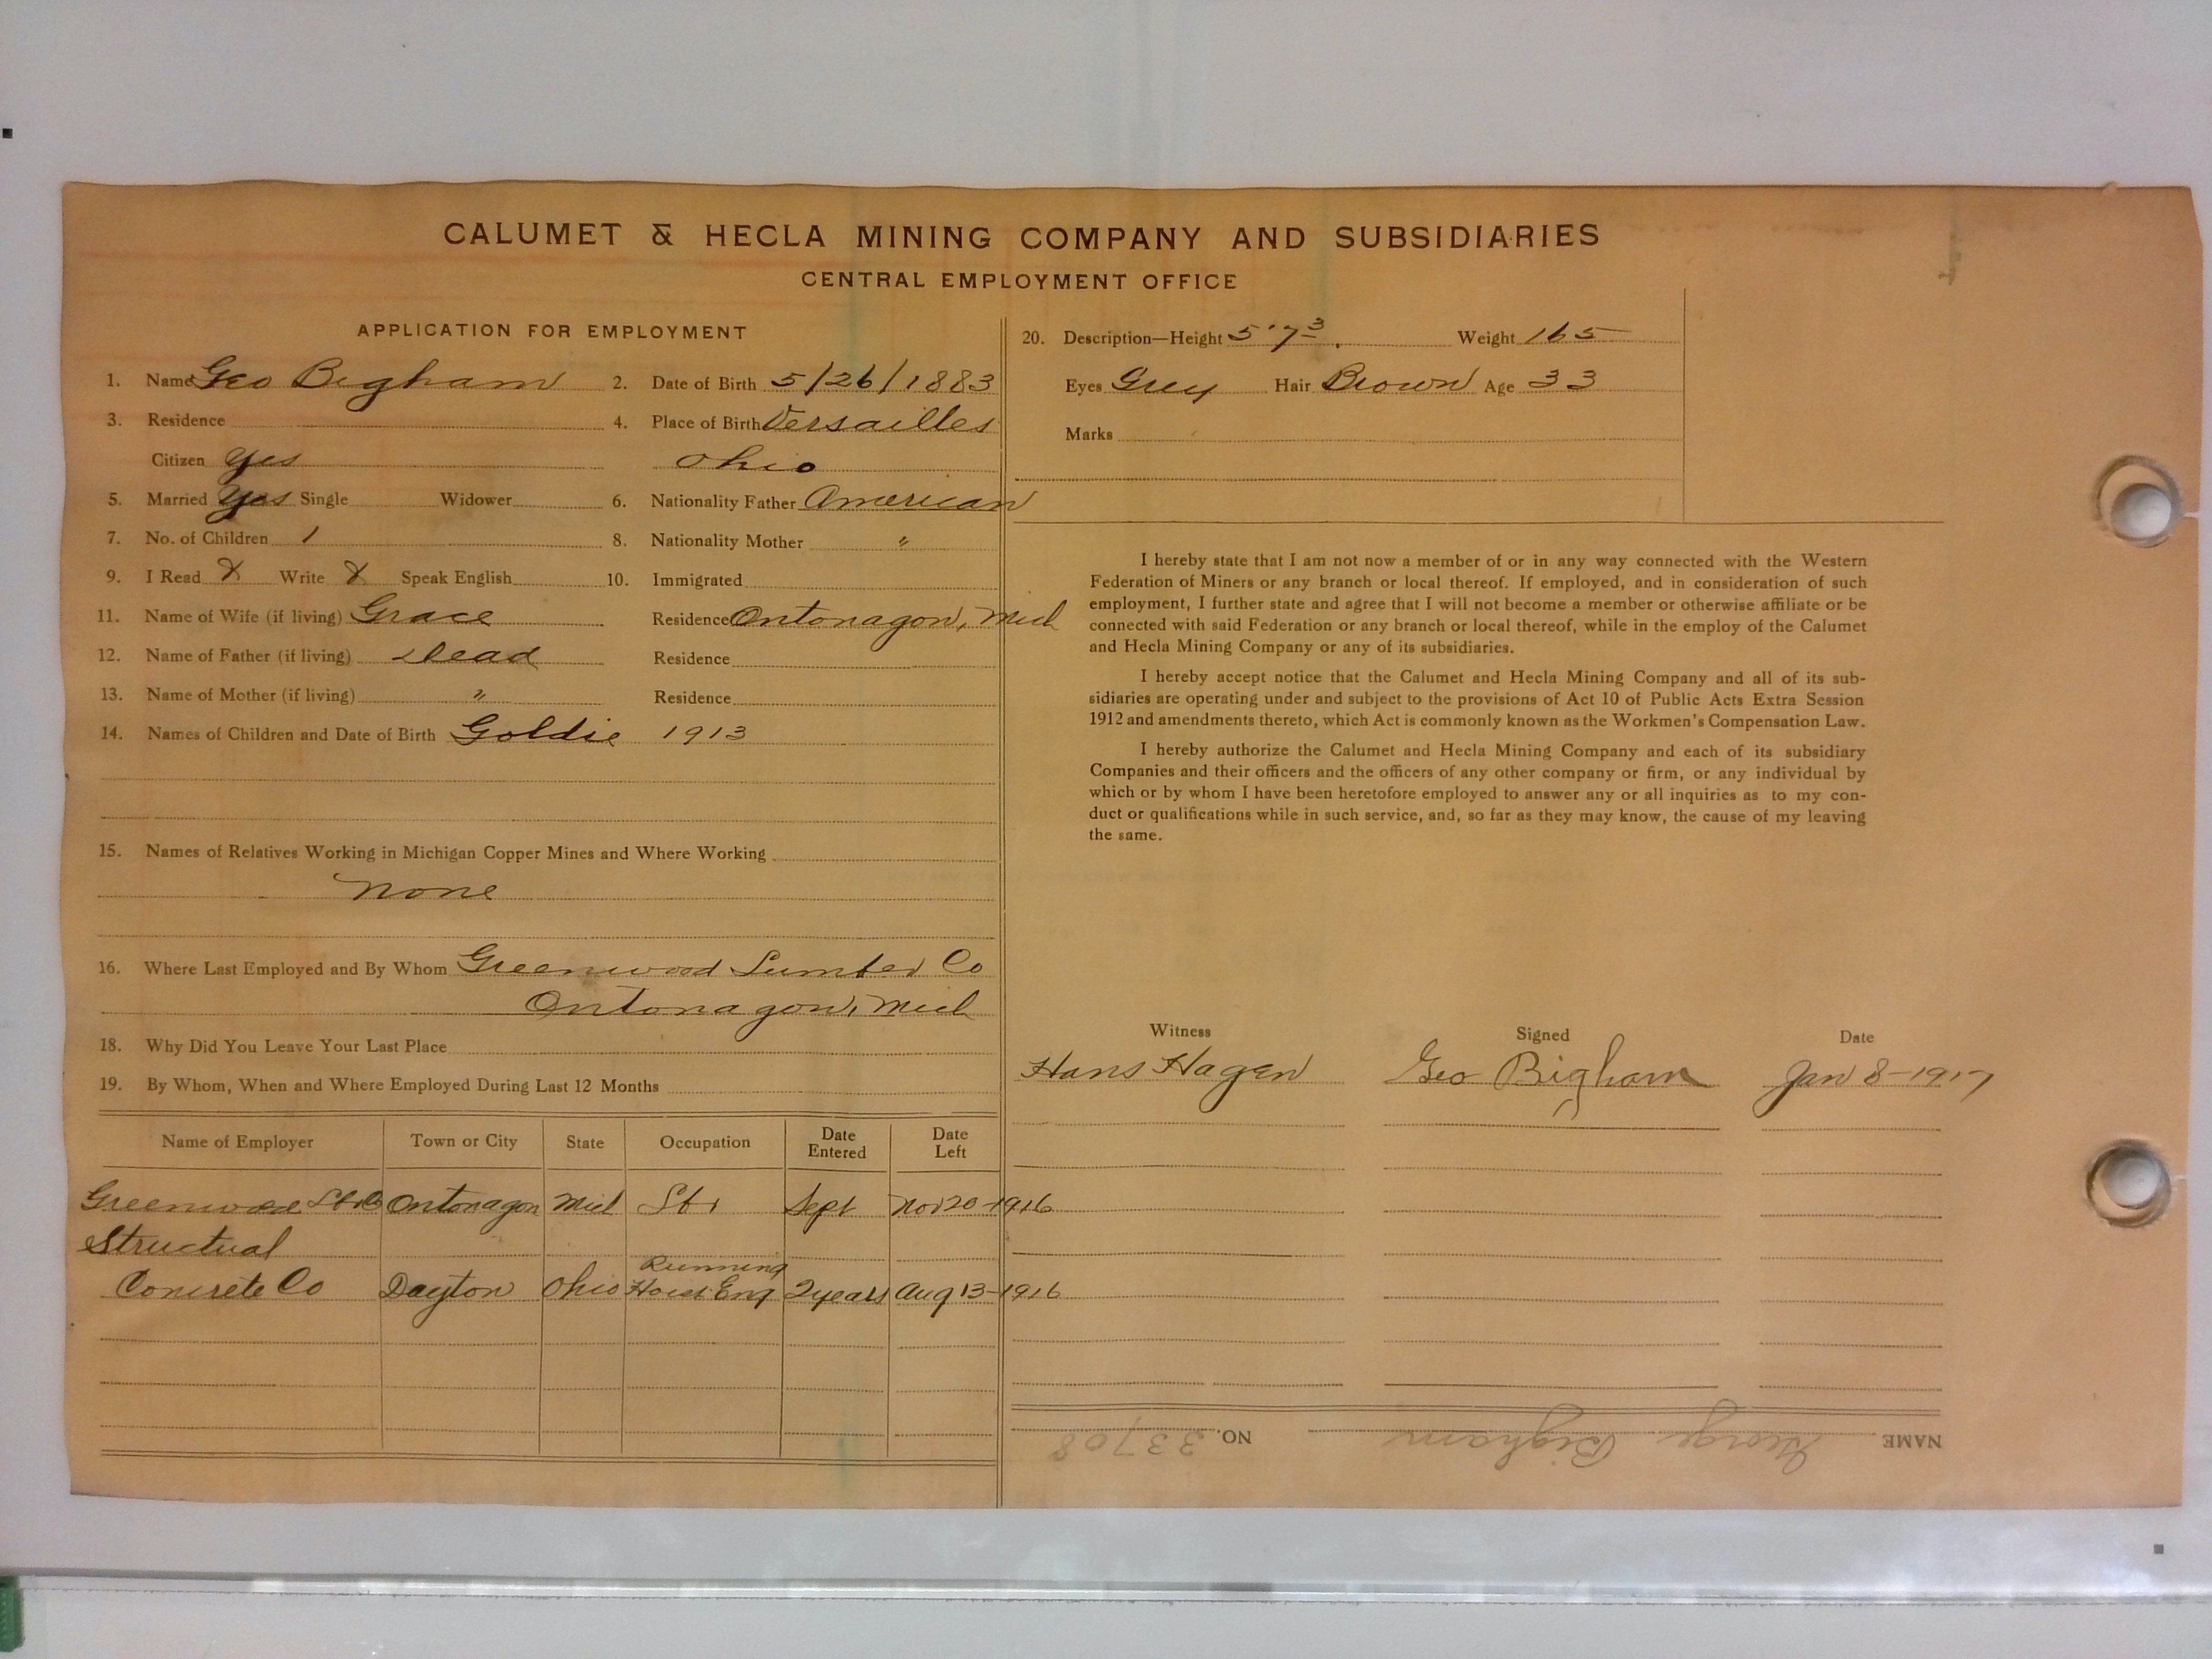 CALUMET & HECLA MINING COMPANY AND SUBSIDIARIES
CENTRAL EMPLOYMENT OFFICE
APPLICATION FOR EMPLOYMENT
1. Name Geo Bigham 2. Date of Birth 5/26/1883
3. Residence 4. Place of Birth Versailles
Citizen Yes Ohio
5. Married Yes Single Widower 6. Nationality Father American
7. No. of Children 1 8. Nationality Mother "
9. I Read X Write X Speak English 10. Immigrated
11. Name of Wife (if living) Grace Residence Ontonagon, Mich
12. Name of Father (if living) Dead Residence
13. Name of Mother (if living) " Residence
14. Names of Children and Date of Birth Goldie 1913
15. Names of Relatives Working in Michigan Copper Mines and Where Working
None
16. Where Last Employed and By Whom Greenwood Lumber Co
Ontonagon, Mich
18. Why Did You Leave Your Last Place
19. By Whom, When and Where Employed During Last 12 Months
Name of Employer Town or City State Occupation Date Entered Date Left
Greenwood Ontonagon Mich Sept Nov 20-1916
Structural
Running
Concrete Co Dayton Ohio Hoist Eng 2 years Aug 13-1916
20. Description—Height 5'7 3 Weight 165
Eyes Grey Hair Brown Age 33
Marks
I hereby state that I am not now a member of or in any way connected with the Western
Federation of Miners or any branch or local thereof. If employed, and in consideration of such
employment, I further state and agree that I will not become a member or otherwise affiliate or be
connected with said Federation or any branch or local thereof, while in the employ of the Calumet
and Hecla Mining Company or any of its subsidiaries.
I hereby accept notice that the Calumet and Hecla Mining Company and all of its sub-
sidiaries are operating under and subject to the provisions of Act 10 of Public Acts Extra Session
1912 and amendments thereto, which Act is commonly known as the Workmen's Compensation Law.
I hereby authorize the Calumet and Hecla Mining Company and each of its subsidiary
Companies and their officers and the officers of any other company or firm, or any individual by
which or by whom I have been heretofore employed to answer any or all inquiries as to my con-
duct or qualifications while in such service, and, so far as they may know, the cause of my leaving
the same.
Witness Signed Date
Hans Hagen Geo Bigham Jan 8-1917
NAME George Bigham NO. 33708